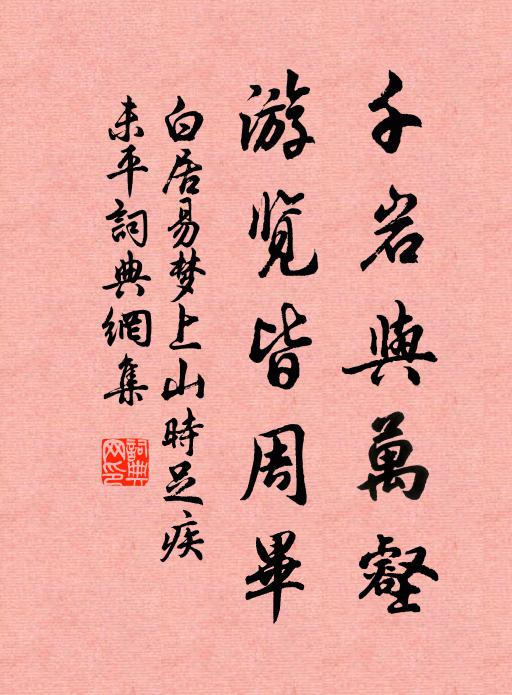 千岩與萬壑
游览皆周畢
白居易梦上山時足疾
未平詞典網集
詞典网印